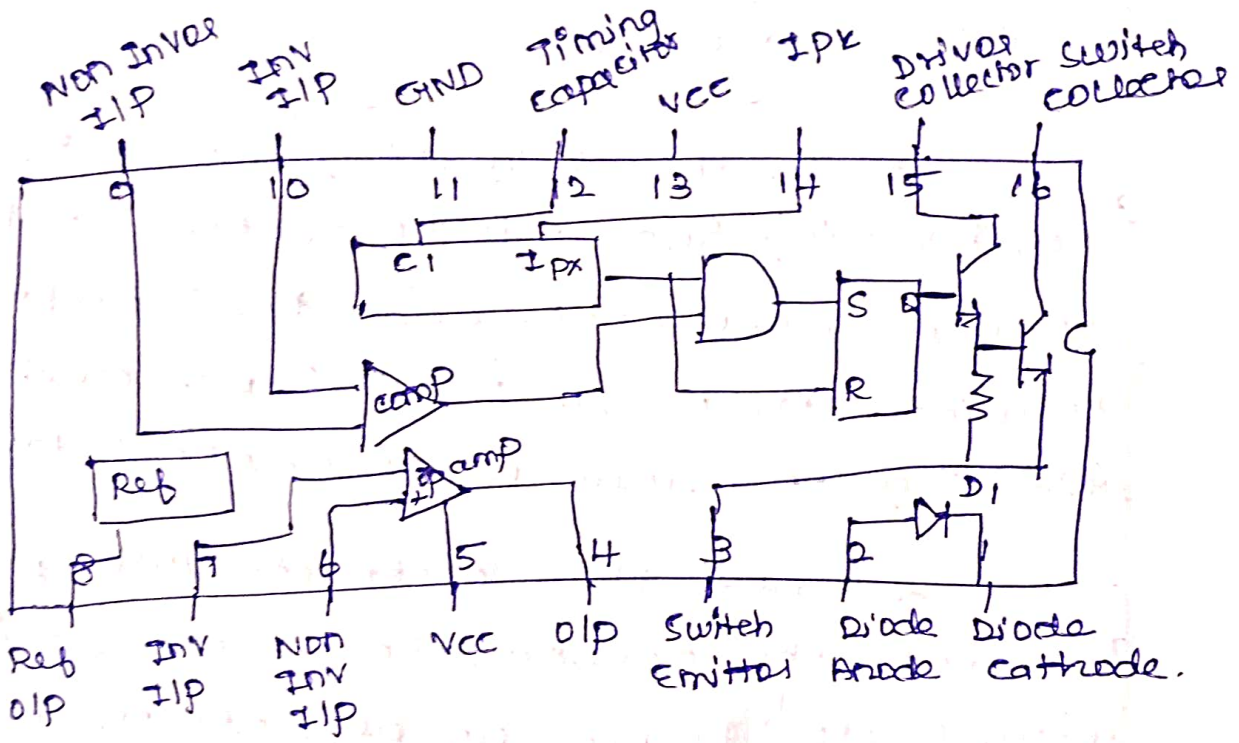 Non Inver
I/P
Inv
I/P
GND
Timing
capacitor
VCC
IPK
Driver
collector
switch
collector
9
10
11
12
13
14
15
16
C1
Ipx
S
Q
R
comp
Ref
op amp
D1
8
7
6
5
4
3
2
1
Ref
O/P
Inv
I/P
Non
Inv
I/P
VCC
O/P
Switch
Emitter
Diode
Anode
Diode
Cathode.